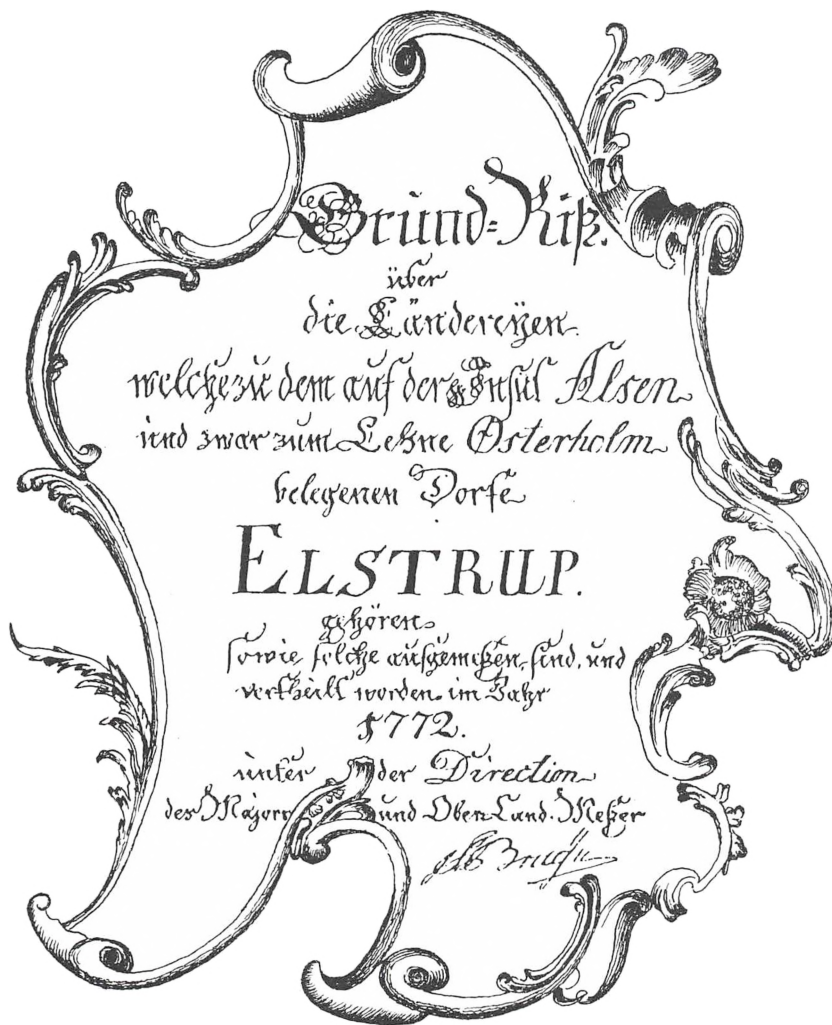 Grund=Riß.
über
die Ländereyen
welche zu dem auf der Insul Alsen
und zwar zum Lehne Osterholm
belegenen Dorfe
ELSTRUP.
gehören
sowie solche ausgemeßen sind, und
vertheilt worden im Jahr
1772.
unter der Direction
des Majors und Ober Land-Meßer